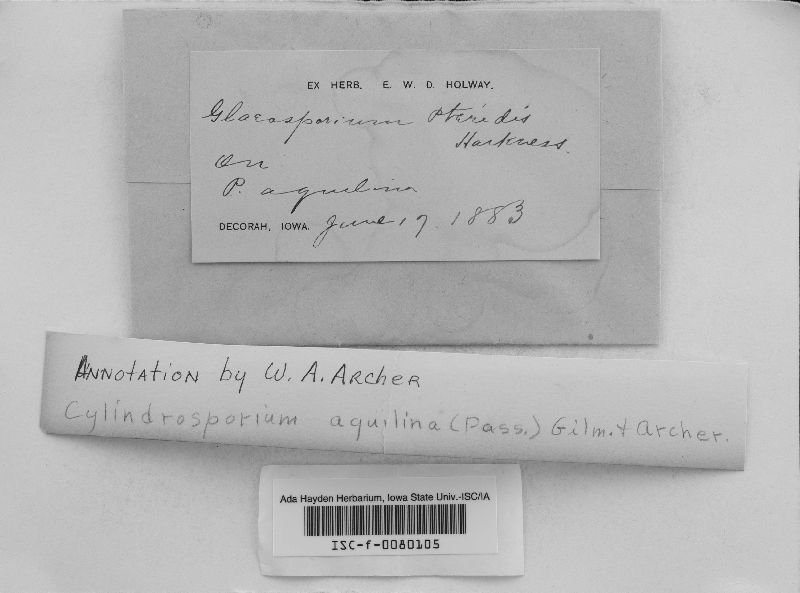 EX HERB. E. W. D. HOLWAY.
Gloeosporium Pteridis
Harkness.
On
P. aquilina
DECORAH, IOWA. June 17. 1883
ANNOTATION by W. A. ARCHER
Cylindrosporium aquilina (Pass.) Gilm. & Archer.
Ada Hayden Herbarium, Iowa State Univ.-ISC/IA
ISC-f-0080105